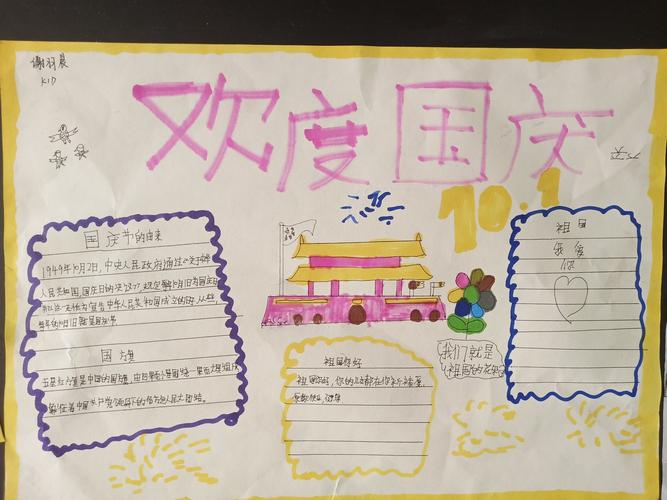 谢羽晨
KID
欢度国庆
10.1
国庆节的由来
1949年10月2日,中央人民政府通过《关于中华
人民共和国,国庆日的决议》,规定每年10月1日为国庆日
并以这一天作为宣告中华人民共和国成立的日子,从此,
每年的10月1日就是国庆节.
国旗
五星红旗是中国的国旗,由
象征着中国共产党领导下的
人民大团结.
祖国你好
祖国你好,你的儿女都在你
我们就是
祖国的花朵
祖国
我爱
你